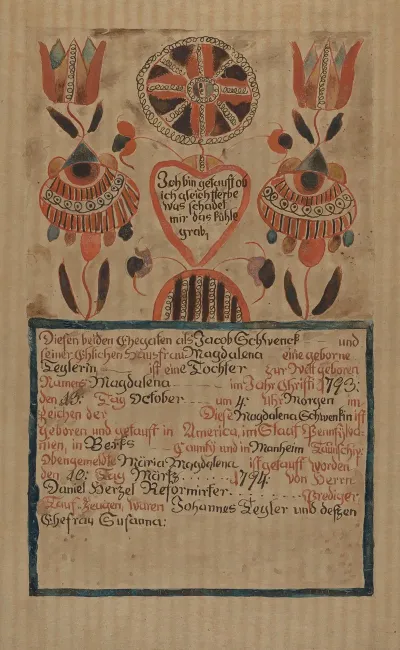 Ich bin getauft ob
ich gleich sterbe
was schadet
mir das kühle
grab,
Diesen beiden Ehegaten als Jacob Schwenck und
seiner Ehlichen Hausfrau Magdalena eine geborne
Teylerin ist eine Tochter zur Welt geboren
Namens Magdalena im Jahr Christi 1793:
den 10: Tag October um 4: Uhr Morgen im
Zeichen der Diese Magdalena Schwenkin ist
geboren und getauft in America, im Staat Pennsylva=
nien, in Berks Caunty und in Manheim Taunschip:
Obengemeldte Maria Magdalena ist getauft worden
den 10: Tag Märtz 1794: von Herrn
Daniel Herzel Reformirter Prediger
Tauf-Zeugen, waren Johannes Teyler und deßen
Ehefrau Susanna: